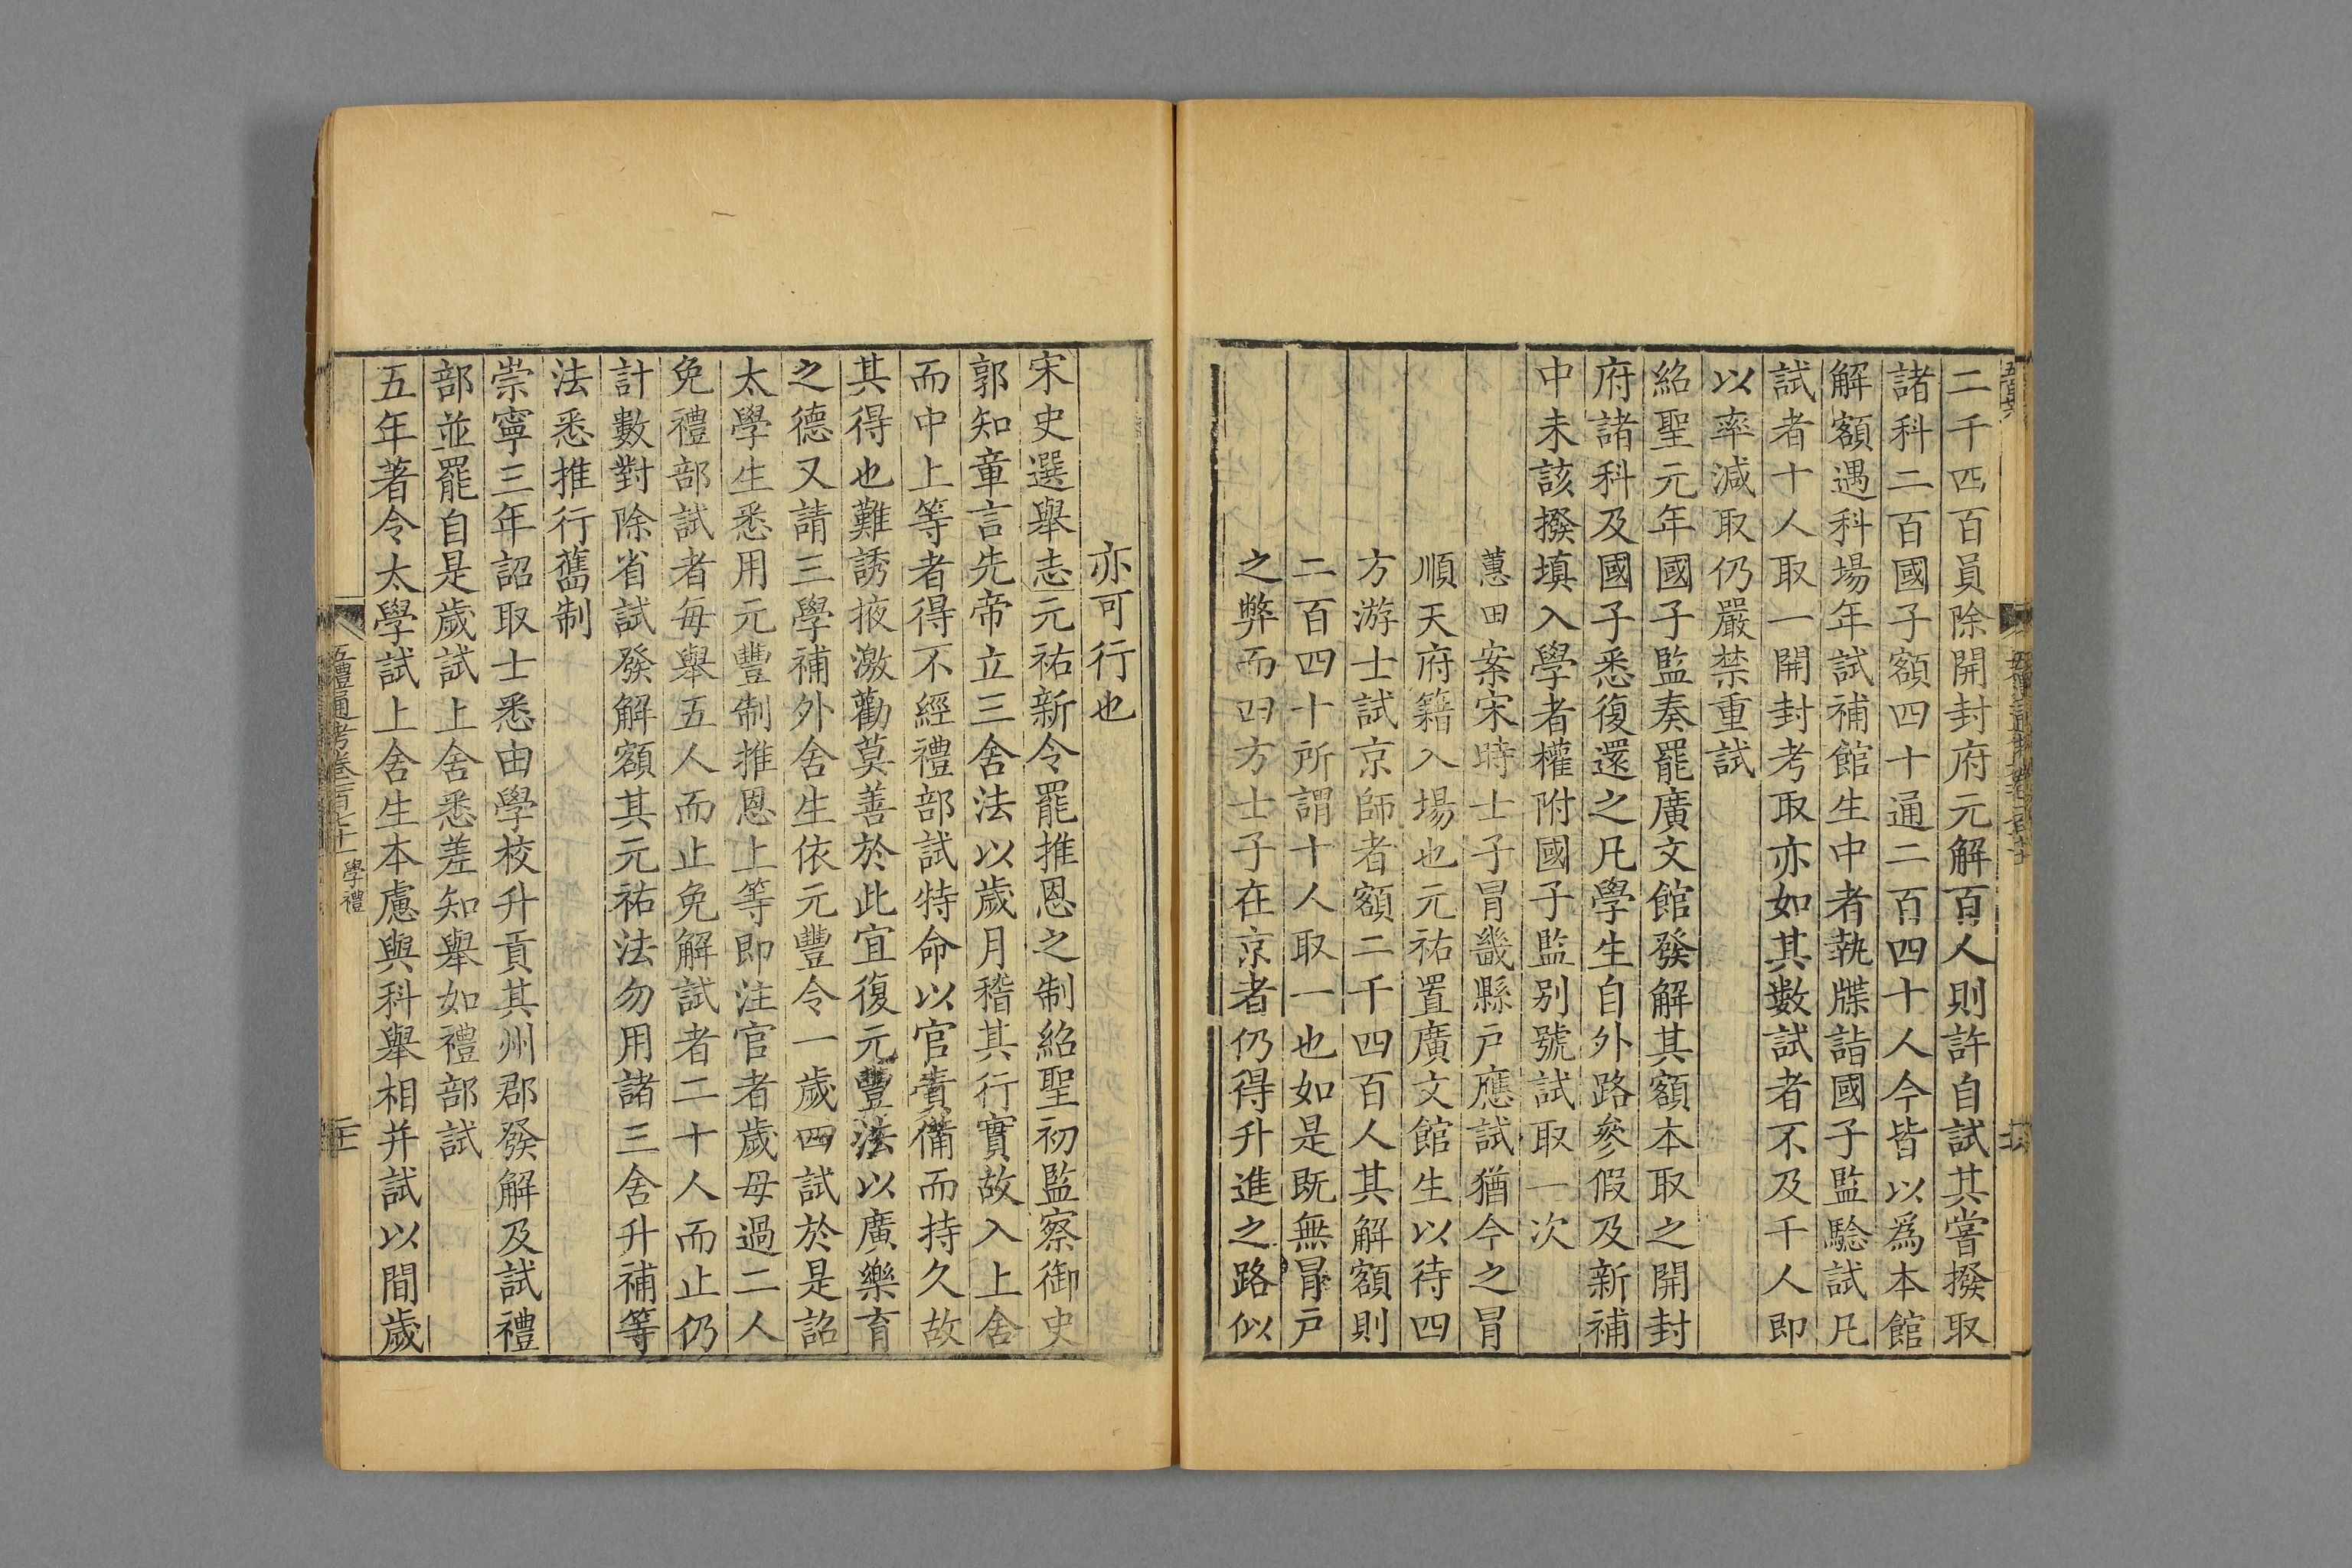 二千匹百員除開封府元解百人則許自試其嘗撥取
諸科二百國子額四十通二百四十人今皆以爲本館
解額遇科場年試補館生中者執牒詣國子監驗試凡
試者十人取一開封考取亦如其數試者不及千人即
以率減取仍嚴禁重試
紹聖元年國子監奏罷廣文館發解其額本取之開封
府諸科及國子悉復還之凡學生自外路參假及新補
中未該撥填入學者權附國子監別號試取一次
蕙田案宋時士子冒畿縣戶應試猶今之冒
順天府籍入場也元祐置廣文館生以待四
方游士試京師者額二千四百人其解額則
二百四十所謂十人取一也如是既無冒戶
之弊而四方士子在京者仍得升進之路似
亦可行也
宋史選舉志元祐新令罷推恩之制紹聖初監察御史
郭知章言先帝立三舍法以歲月稽其行實故入上舍
而中上等者得不經禮部試特命以官責備而持久故
其得也難誘掖激勸莫善於此宜復元豐法以廣樂育
之德又請三學補外舍生依元豐令一歲四試於是詔
太學生悉用元豐制推恩上等即注官者歲毋過二人
免禮部試者每舉五人而止免解試者二十人而止仍
計數對除省試發解額其元祐法勿用諸三舍升補等
法悉推行舊制
崇寧三年詔取士悉由學校升貢其州郡發解及試禮
部並罷自是歲試上舍悉差知舉如禮部試
五年著令太學試上舍生本慮與科舉相并試以間歲
五禮通考卷一百七十一 學禮